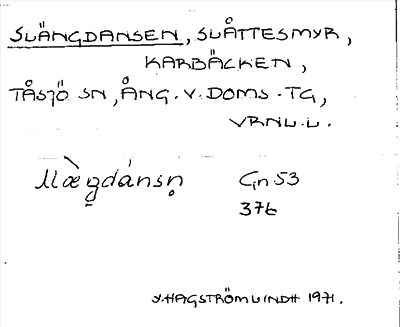 SLÄNGDANSEN, SLÅTTESMYR,
KARBÄCKEN,
TÅSJÖ SN, ÅNG. V. DOMS. TG,
VRNL.L.
Gn 53
376
Y. HAGSTRÖM LINDH 1971.